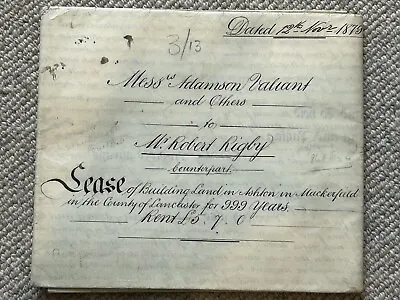 Dated 12th Novr 1875
3/13
Messrs Adamson Valiant
and Others
to
Mr Robert Rigby
Counterpart
Lease of Building Land in Ashton in Mackerfield
in the County of Lancaster for 999 Years.
Rent £5. 7. 0